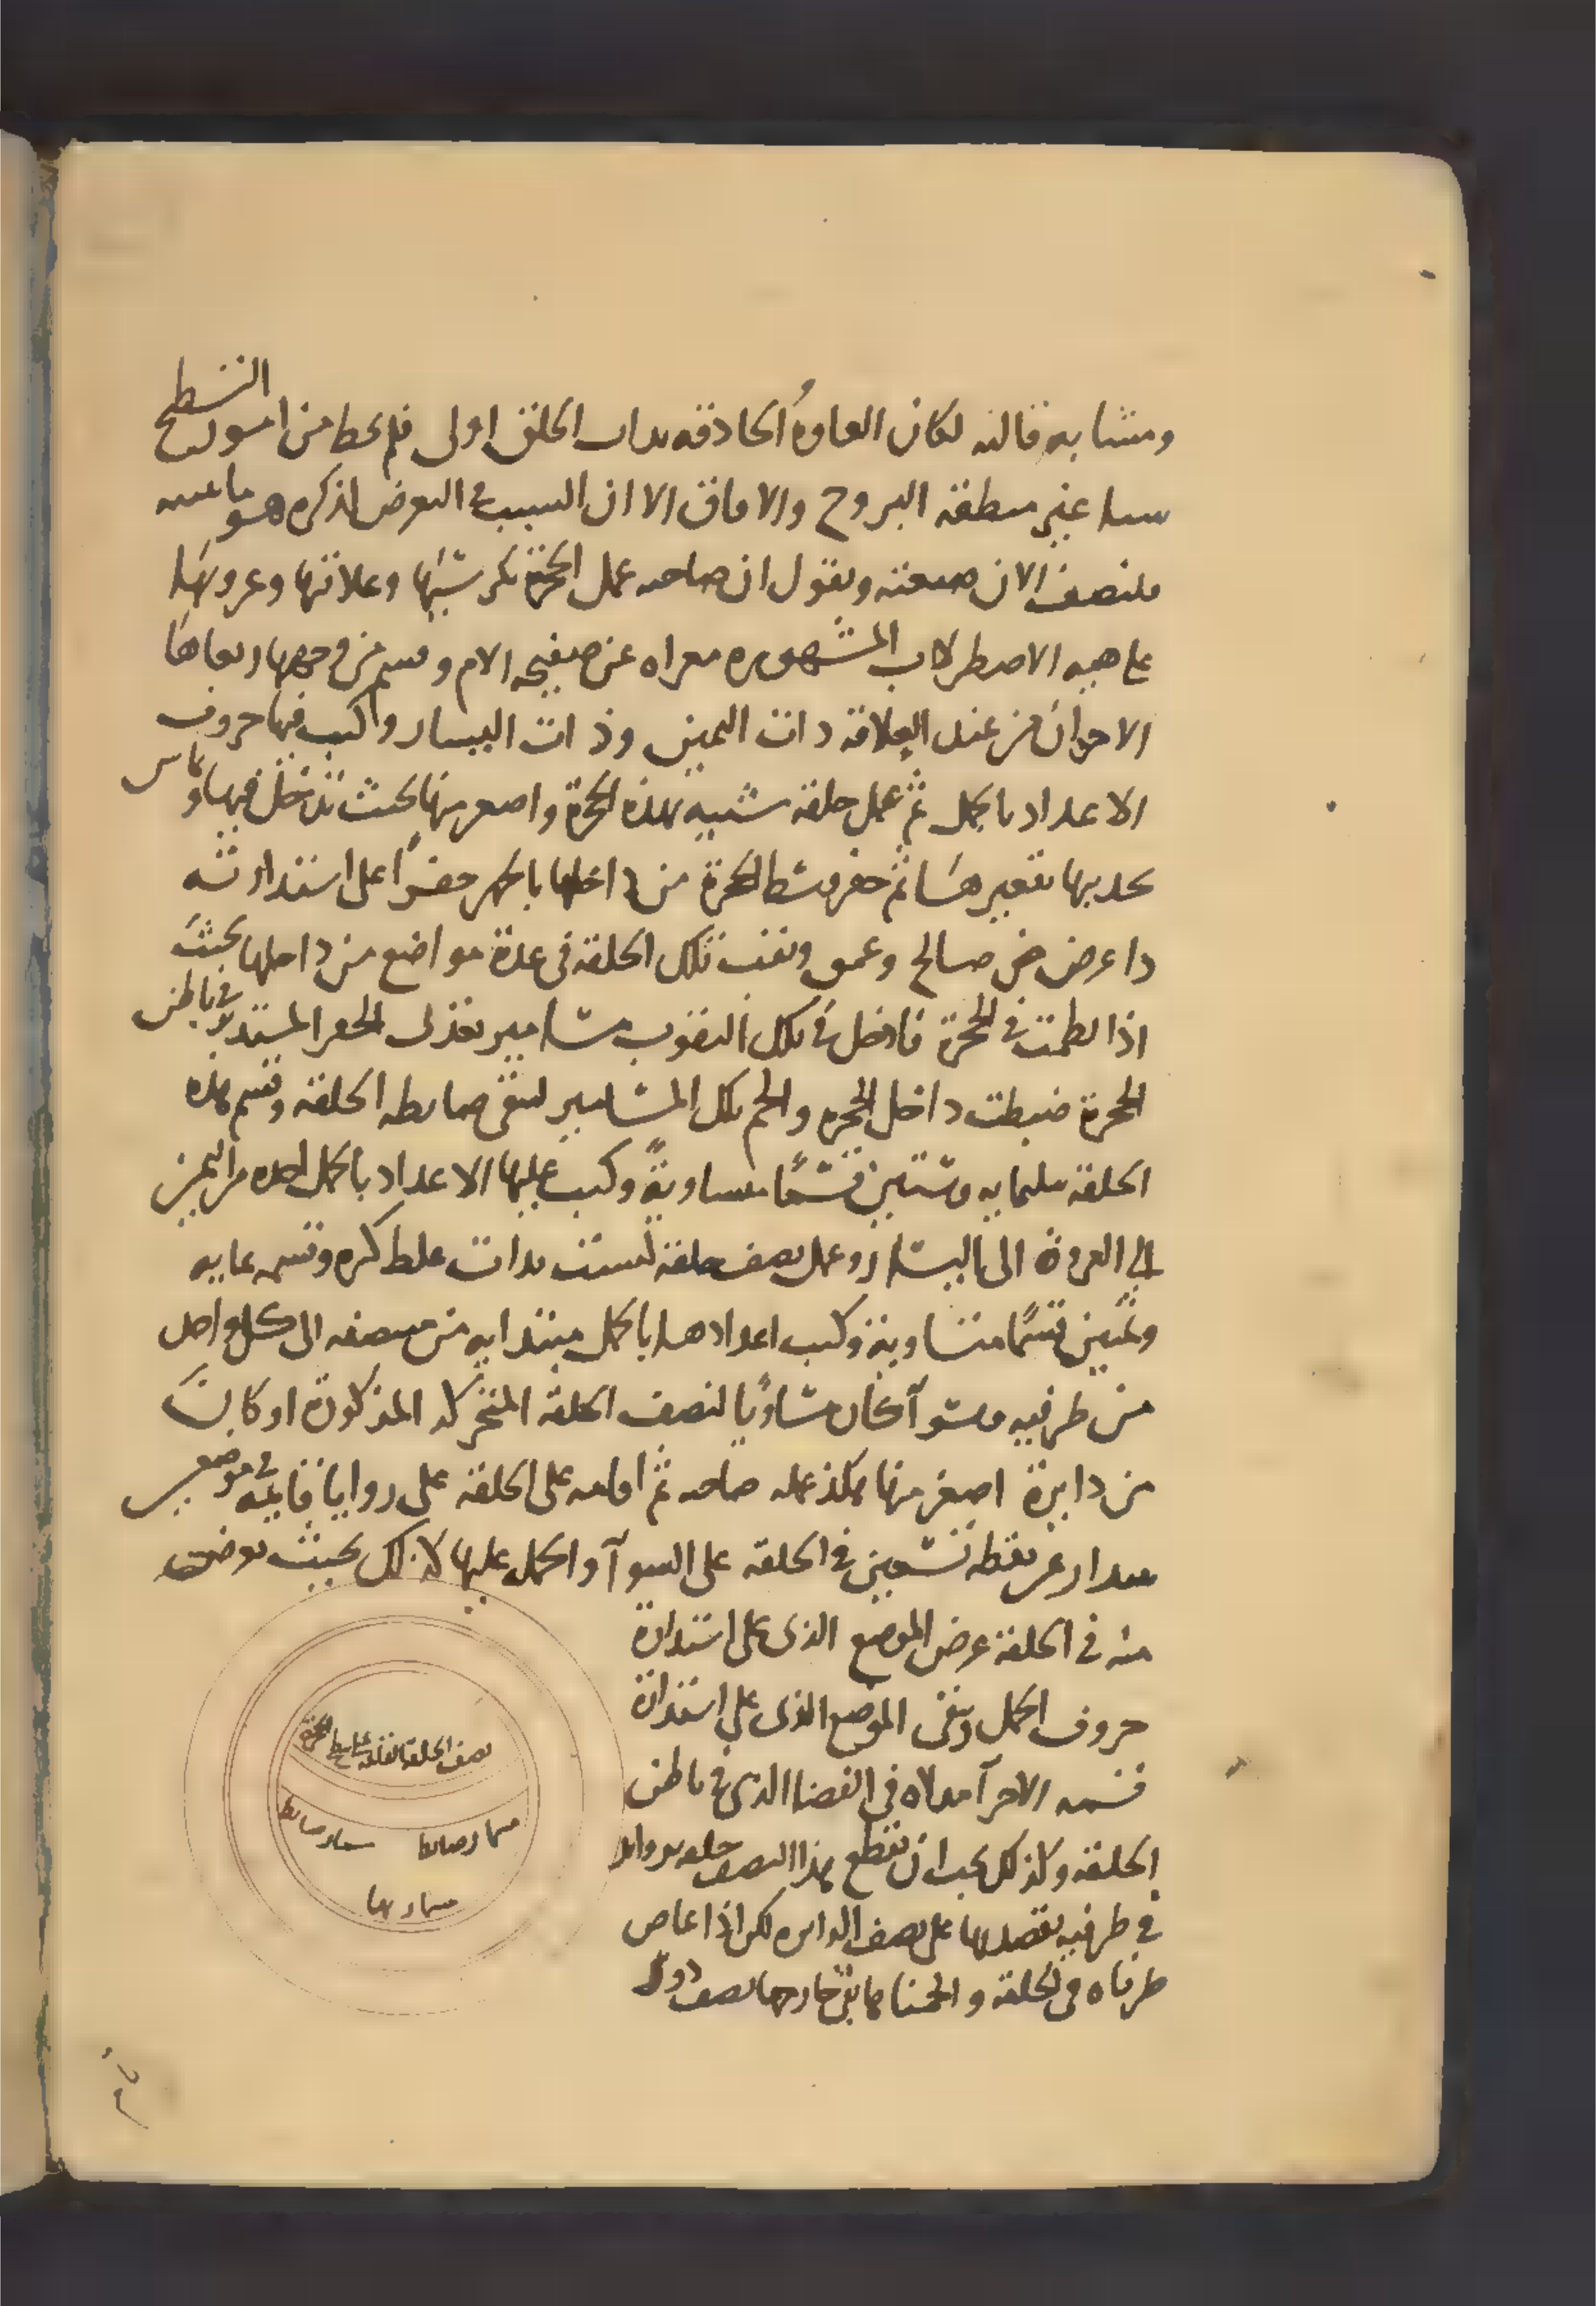 ومشابه فالته لكان العاوة الحاذقه بذات الحلق اولى فلم يحط من امور التسطيح
سيا غير منطقة البروج والافاق الا ان السبب في التعرض لذكره هو ما عنيه
فلنصف الان صنعته ونقول ان صاحبه عمل الحجرة بكرسيها وعلاقتها وعروتها
على هيه الاصطرلاب المشهوره معراه عن صفيحه الام وقسم من وجهها ارباعها
الاجزاء من عند العلاقة ذات اليمين وذات اليسار وكتب فيها حروف
الاعداد بالجمل ثم عمل حلقة شبيه بهذه الحجرة واصغر منها بحيث تدخل فيها ويماس
تحديبها تقعيرها ثم حفر وسط الحجرة من داخلها بالجهر حفرا على استدارته
ذا عرض صالح وعمق وثقب تلك الحلقة في عدة مواضع من داخلها بحيث
اذا نظمت في الحجرة فادخل في تلك الثقوب مسامير تعذلت الحفر المستدير في باطن
الحجرة ضبطت داخل الحجره والحم تلك المسامير لتبقى ضابطه الحلقة وقسم هذه
الحلقة بثلثمايه وستين قسما متساوية وكتب عليها الاعداد بالجمل اخذه من اليمين
الى العروة الى اليسار وعمل نصف حلقة ليست بذات غلظ كره وقسمه بمايه
وثمنين قسما متساوية وكتب اعدادها بالجمل مبتدايه من منتصفه الى كل واحد
من طرفيه وسوآ كان مساويا لنصف الحلقة المتحركه المذكورة او كانت
من دايرة اصغر منها هكذا عمله صاحبه ثم اقامه على الحلقة على زوايا قايمه في موضعين
بعدا عن نقطة تسعين في الحلقة على السوآ والحمل عليها كذلك بحيث يعرض
منه في الحلقة عرض الموضع الذى على استدارة
حروف الجمل ويبقى الموضع الذى على استدارة
قسمه الاجزآ مدلاه في الفضا الذى في باطن
الحلقة وكذلك يجب ان يقطع هذا النصف حلقه بزوايد
في طرفيه يفضل بها على نصف الدايره لكن اذا غاص
طرفاه في الحلقة والحما بها بقى خارجها نصف دور
نصف الحلقة القايمة على سطح الحجرة
مسمار ضابط
مسمار ضابط
مسمار بها